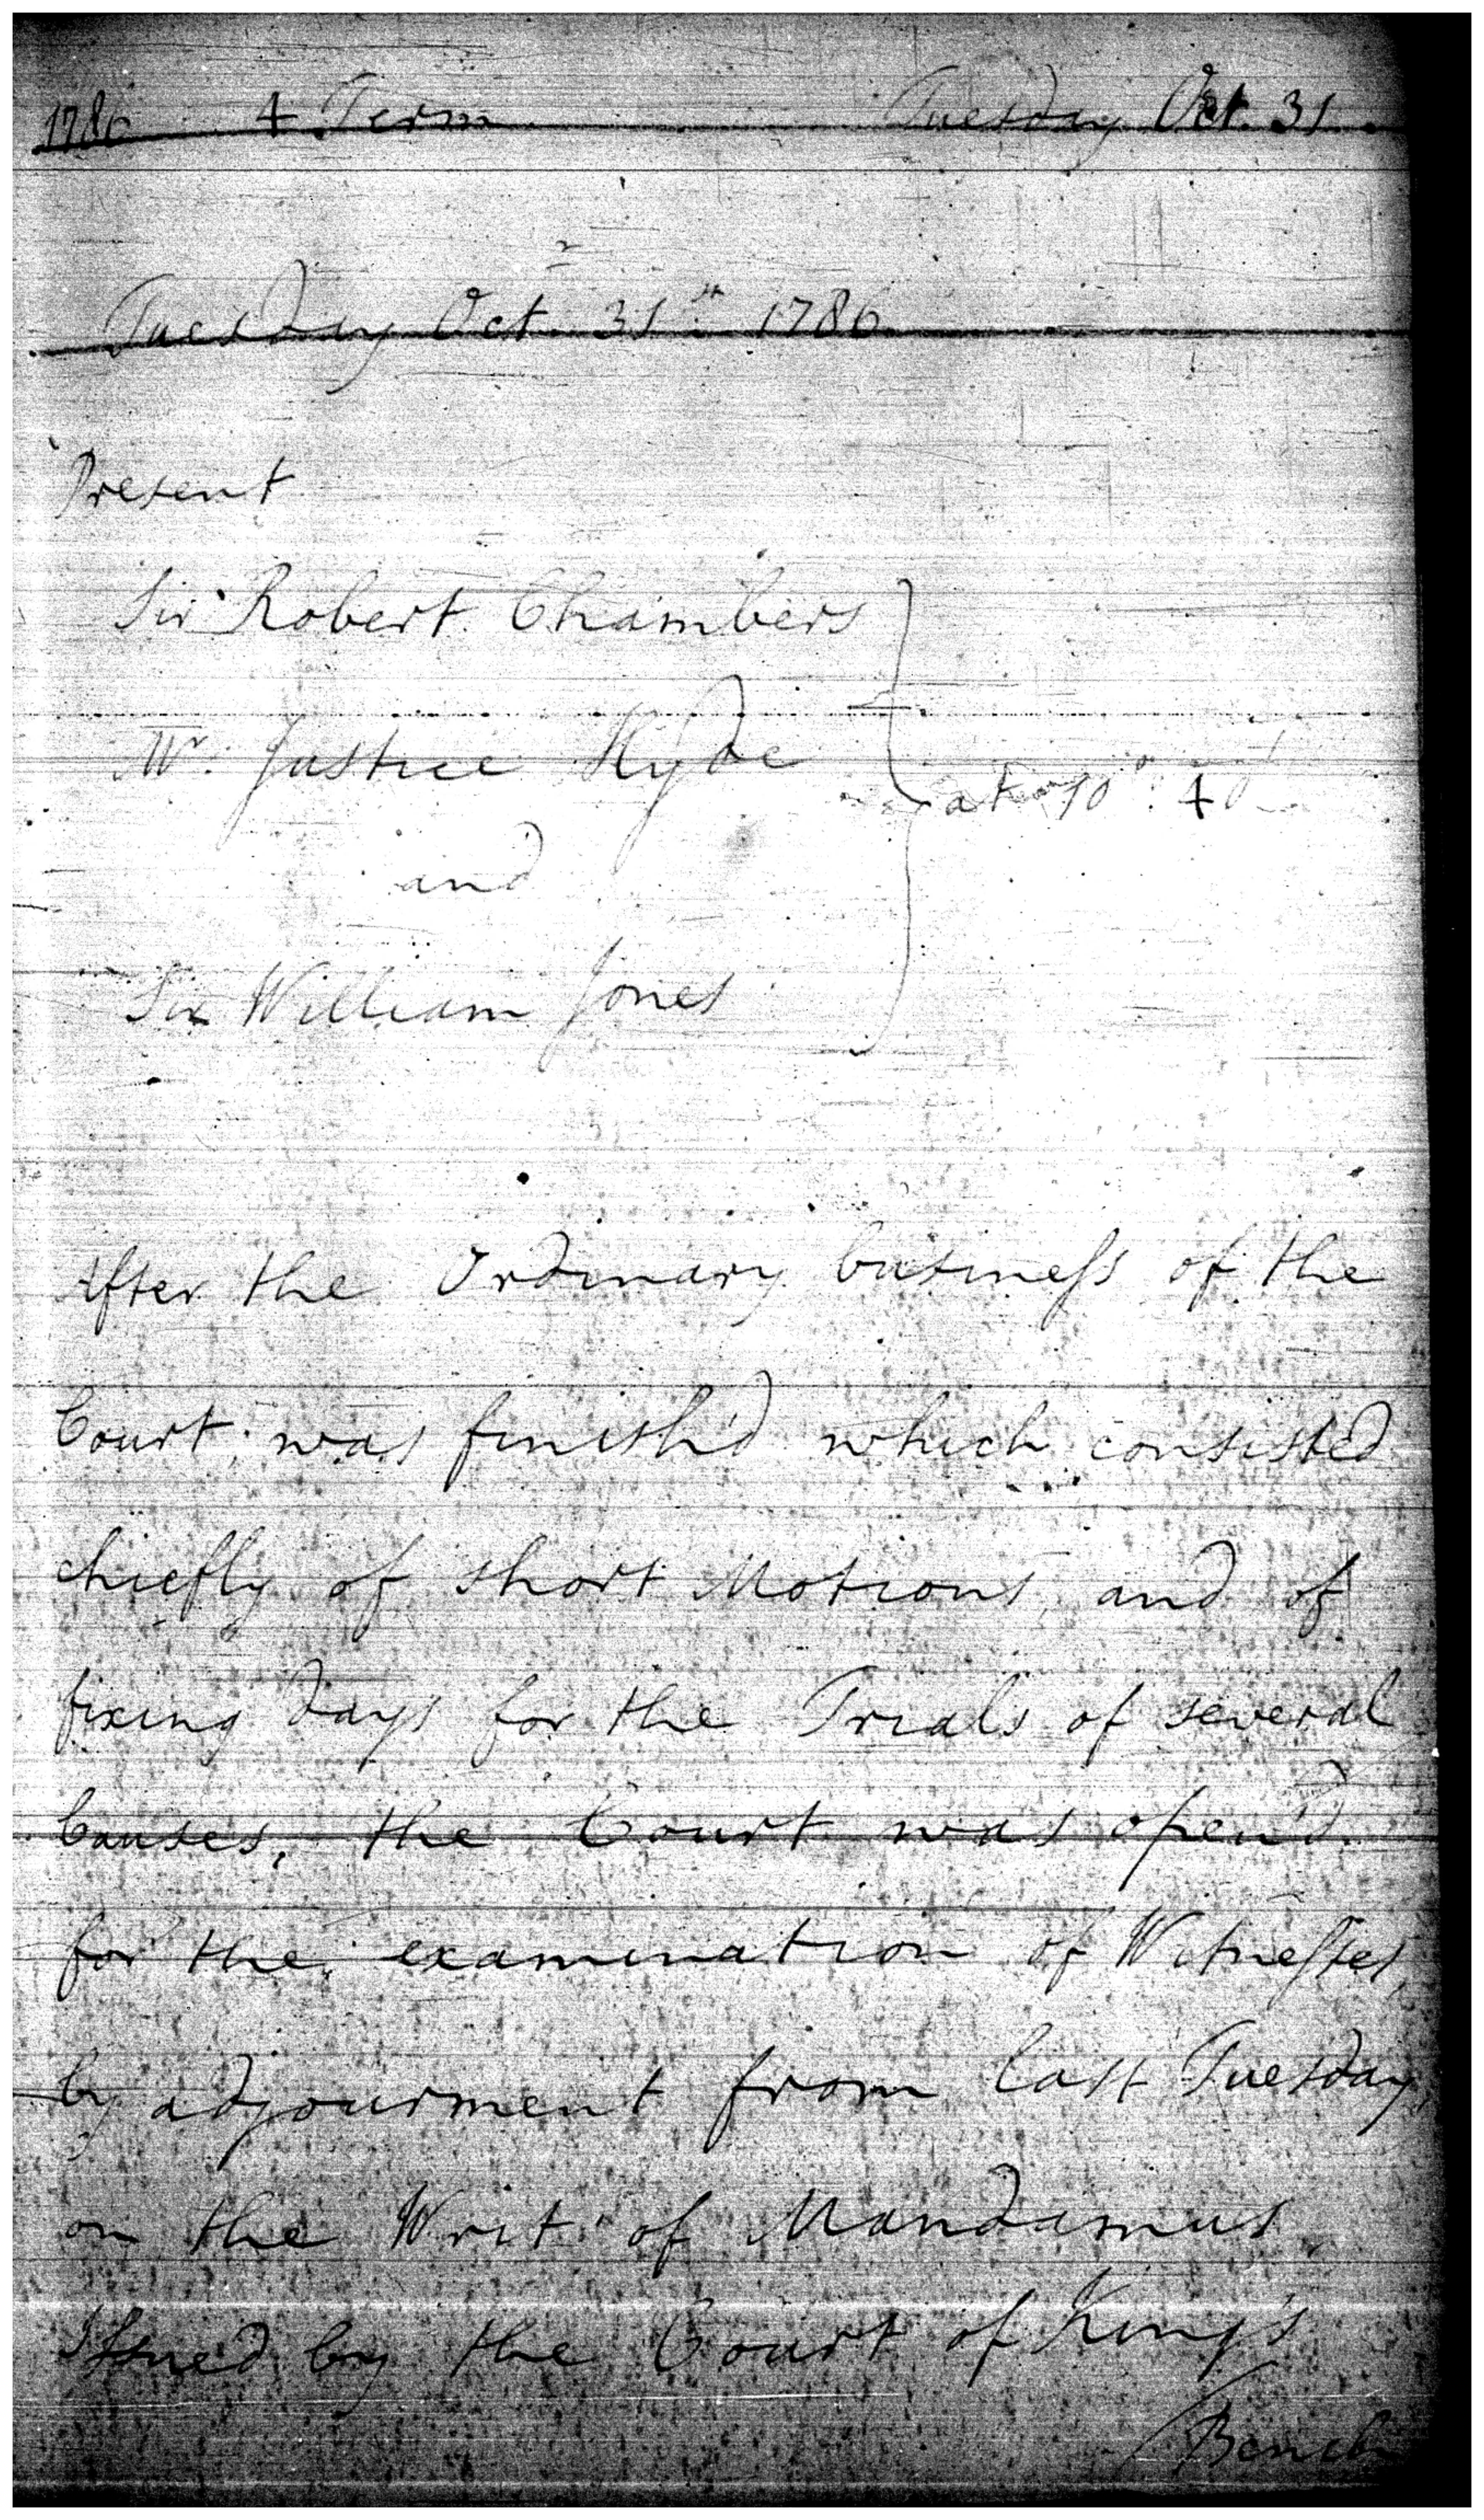 1786 4 Term Tuesday Oct. 31
Tuesday Oct. 31st. 1786
Present
Sir Robert Chambers
Mr. Justice Hyde
at 10°: 40'
and
Sir William Jones
After the Ordinary businefs of the
Court was finish'd which consisted
chiefly of short Motions, and of
fixing days for the Trials of several
Causes, the Court was open'd
for the examination of Witnefses,
by adjourment from last Tuesday,
on the Writ of Mandamus
Ifsued by the Court of King's
Bench